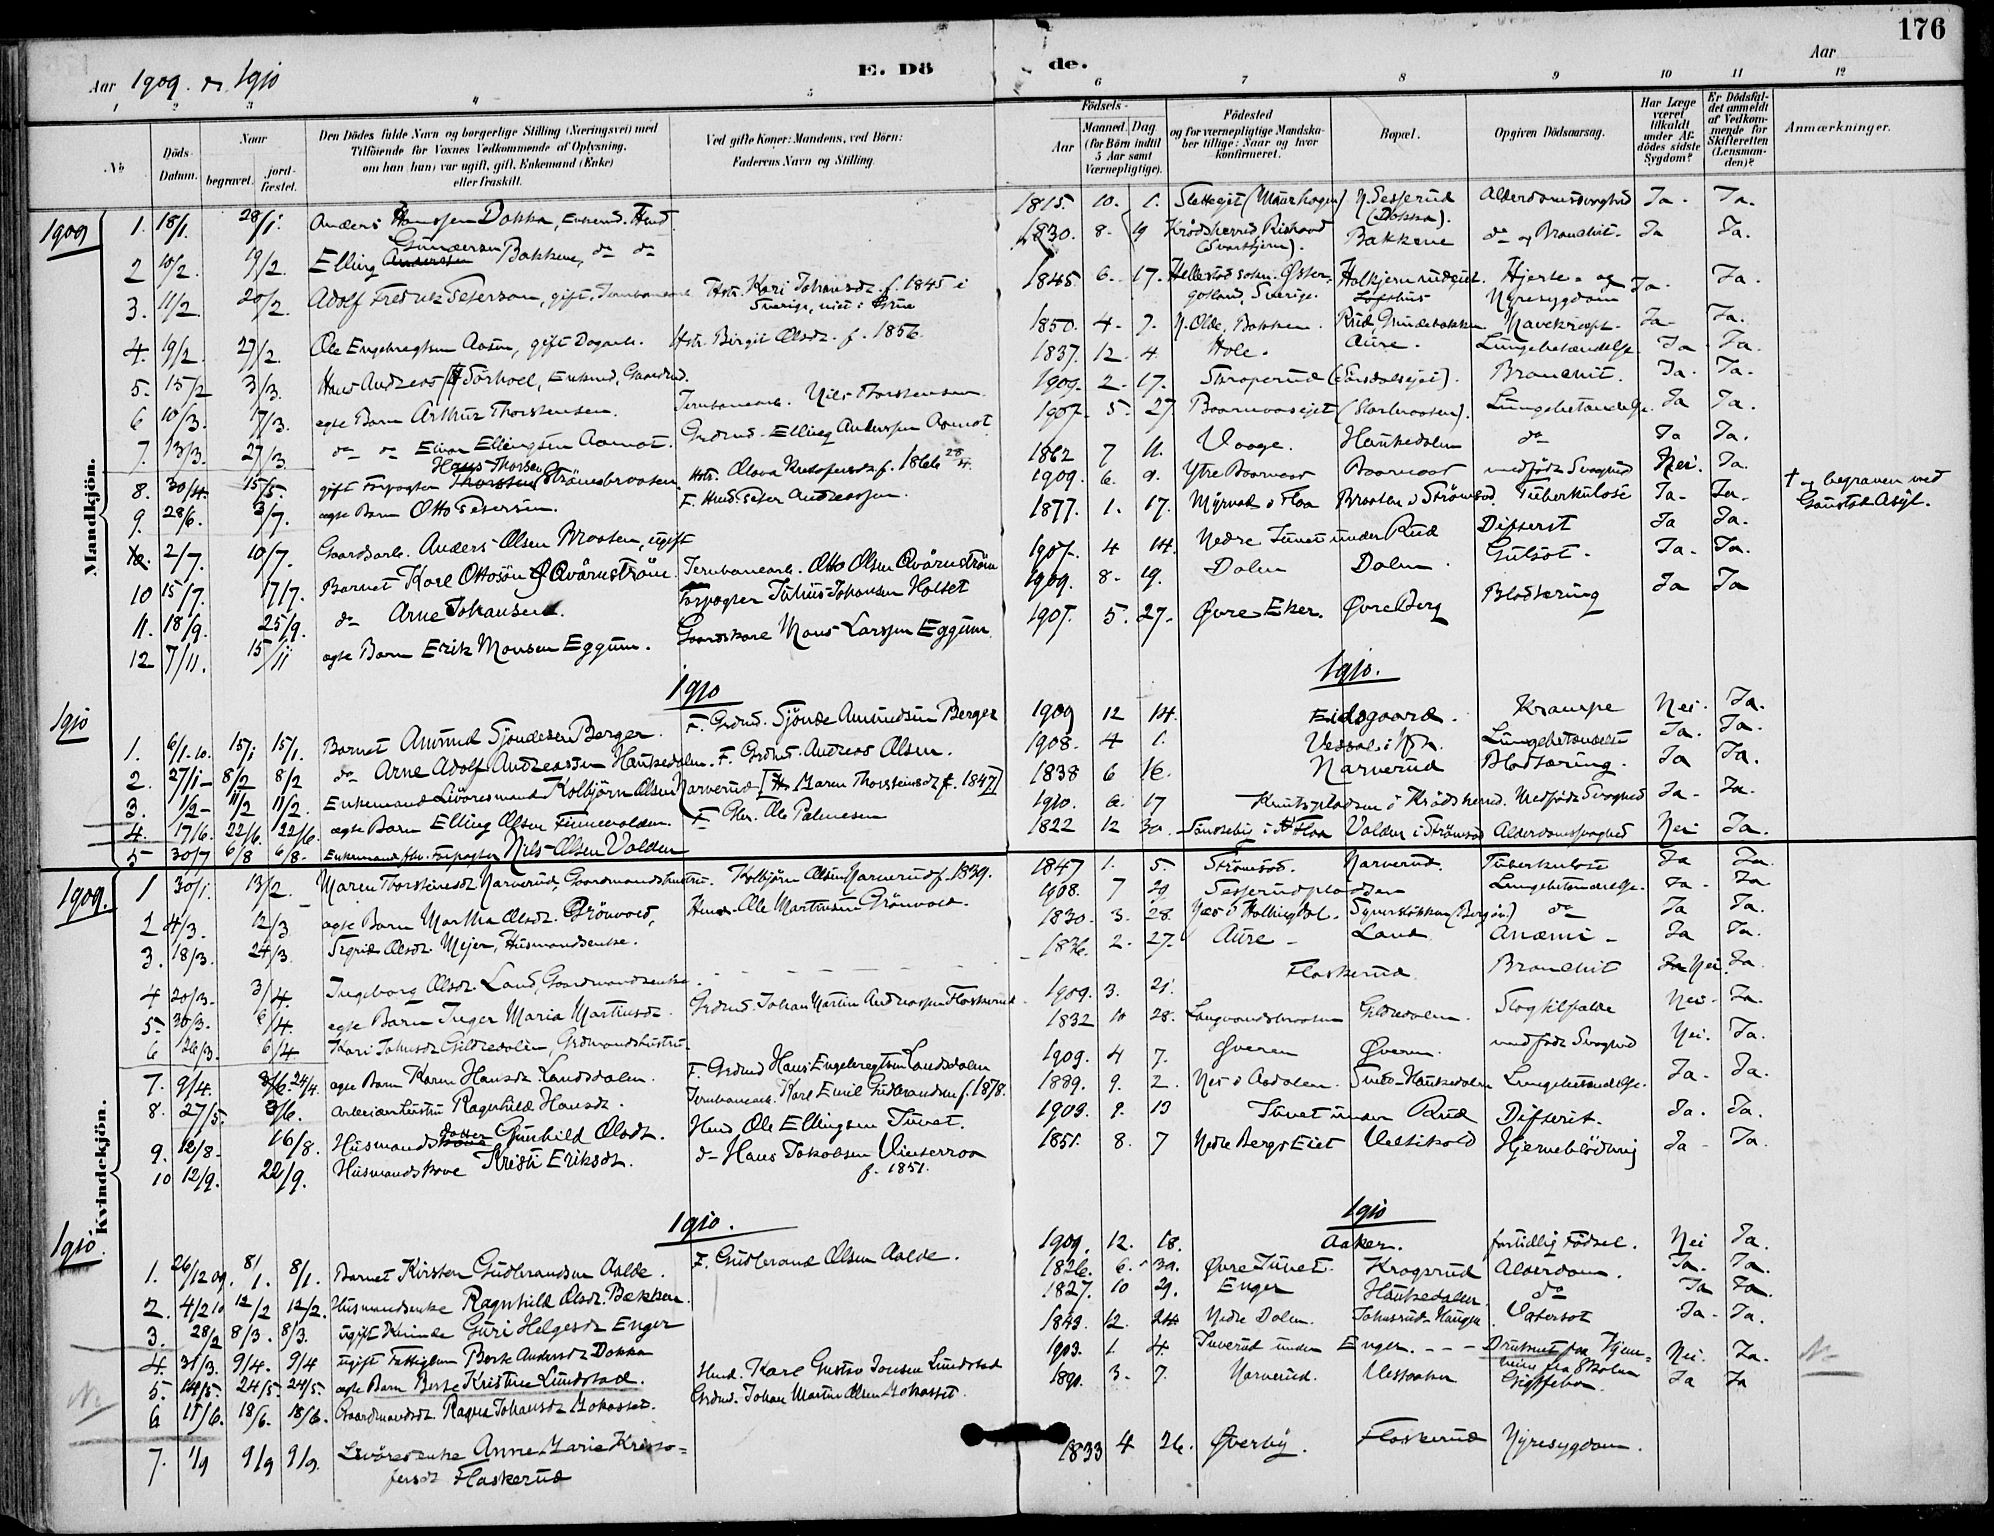 176
Aar 1909. og 1910
E. Dö
de.
Aar
1 2 3 4 5 6 7 8 9 10 11 12
No
Döds-Datum.
Naar
begravet.
jord-fæstet.
Den Dödes fulde Navn og borgerlige Stilling (Næringsvei) med
Tilföiende for Voxnes Vedkommende af Oplysning,
om han (hun) var ugift, gift, Enkemand (Enke)
eller fraskilt.
Ved gifte Koner: Mandens, ved Börn:
Faderens Navn og Stilling.
Födsels-
Aar
Maaned. Dag
(for Börn indtil
5 Aar samt
Værnepligtige).
Födested
og for værnepligtige Mandska-
ber tillige: Naar og hvor
konfirmeret.
Bopæl.
Opgiven Dödsaarsag.
Har Læge
været
tilkaldt
under Af-
dödes sidste
Sygdom?
Er Dödsfal-
det anmeldt
af Vedkom-
mende for
Skifteretten
(Lensman-
den)?
Anmærkninger.
Mandkjön.
1909
1. 18/1. 28/1. Anders Hanssen Dokka, Enkemd. Husmd. 1815 10. 1. Sletteeiet (Maurhagen) N. Sesserud (Dokka). Alderdomssvaghed Ja. Ja.
2 10/2. 19/2. Elling Gundersen Bakkene, do do 1830. 8. 19 Krödsherred, (Svarttjern). Bakkene do og Bronchit. Ja Ja.
3. 11/2 20/2. Adolf Fredrik Peterson, gift, Jernbanearb. Hstr. Kari Johansdr. f. 1845 i Sverige, 1845. 6. 17. Hellestad sogn. Öster-gotland, Sverige. Hjerte- og Nyresygdom Ja. Ja.
4. 19/2. 27/2. Ole Engebregtsen Aasen, gift Dagarb. Hstr. Birgit Olsdr. f. 1856 1850. 4. 7. Ja Ja.
5. 15/2 3/3. Hans Andreas Enkemd, Gaardmd. 1837. 12. 4 Hole. Aure. Lungebetændelse Ja Ja.
6 10/3. 17/3. egte Barn Arthur Thorstensen. Jernbanearb. Nils Thorstensen 1909. 2. 17. Bronchit. Ja. Ja.
7. 13/3. 27/3. do do Einar Ellingsen Aamot. Grdmd. Elling Andersen Aamot. 1907. 5. 27 Lungebetændelse. Ja Ja.
8. 30/4. 15/5. gift Forpagter Hans Thorsen Strömsbraaten. Hstr. Olava Kristofersdr. f. 1866 28/4. 1862 7 11. Vaage. Haukedalen do Ja Ja.
9. 28/6. 3/7. egte Barn Otto Petersen. F. Husmd. Peter Andreassen. 1909. 6. 9. Ytre medfödt Svaghed Nei. Ja.
2/7. 10/7. Gaardsarb. Anders Olsen Braaten, ugift 1877. 1. 17. Myrvold i Flaa Braaten i Strömsod Tuberkulose Ja. Ja. † og begraven ved Gaustad Asyl.
10 15/7. 17/7. Barnet Karl Ottosön Qvärnström. Jernbanearb. Otto Olsen Qvärnström 1907. 4 14. Nedre Tunet under Rud Difterit Ja Ja.
11. 18/9. 25/9. do Arne Johansen. Forpagter Julius Johansen Holtet 1909. 8. 19. Dalen Dalen. Gulsot. Ja. Ja.
12 7/11. 15/11 egte Barn Erik Monsen Eggum. Mons Larssen Eggum 1907. 5. 27. Øvre Eker. Øvre Berg Ja Ja
1910 1910.
1910
1. 6/1.10. 15/1 15/1. Barnet Amund Sjöndesen Berger. F. Grdmd. Sjönde Amundsen Berger 1909 12 14. Eidsgaard. Krampe Nei. Ja.
2. 27/1 8/2 8/2 do Arne Adolf Andreassen Haukedalen. F. Grdmd. Andreas Olsen. 1908. 4 1. Lungebetændelse Ja. Ja.
3. 1/2 11/2 11/2. Enkemand Livöresmand Kolbjörn Olsen Narverud [Hr. Maren Thorstensdr. f. 1847] 1838 6 16. Narverud Ja Ja.
4. 17/6. 22/6. 22/6. egte Barn Elling Olsen F Ole Palmesen 1910. 6. 17 i Krödsherred. Medfödt Svaghed Ja. Ja.
5 30/7 6/8 6/8. Enkemand fhv. Forpagter Nils Olsen Valden 1822 12 30. i Flaa Valden i Strömsod Nei Ja.
Kvindekjön.
1909.
1 30/1. 13/2. Maren Thorstensdr. Narverud, Gaardmandshustru. Kolbjörn Olsen Narverud f. 1839. 1847 1. 5. Strömsod. Narverud. Tuberkulose Ja Ja.
2 4/3. 12/3 egte Barn Martha Olsdr. Grönvold, Husmd. Ole Martinsen Grönvold. 1908. 7 29 Sesserudpladsen Lungebetændelse. Ja. Ja
3. 18/3. 24/3. Sigrid Olsdr. Mejer, Husmandsenke. 1830. 3. 28. Næs i Hallingdal. do Ja Ja.
4 20/3. 3/4. Ingeborg Olsdr. Land, Gaardmandsenke. 1836. 2. 27. Aure Land. Anæmi Ja Ja.
5. 30/3. 6/4. egte Barn Inger Maria Martinsdr. Grdmd. Johan Martin Andreassen Flaskerud. 1909. 3. 21. Flaskerud Bronchit Ja Nei. Ja.
6 26/3. 6/4. Kari Johnsdr. Gildredalen, Grdmandshustru 1832 10 28. Langvandsbraaten Gildredalen. Slagtilfælde Nei. Ja.
7. 9/4. 24/4. egte Barn Karen Hansdr. Landsdalen. F. Grdmd Hans Engebregtsen Landsdalen 1909. 4 7. Øveren Øveren. medfödt Svaghed Nei. Ja.
8. 27/5. 3/6. Arbeiderhustru Ragnhild Hansdr. Jernbanearb. Karl Emil Gudbrandsen f. 1878. 1889. 9. 2. Nes i Aadalen. Lungebetændelse. Ja. Ja.
9. 12/8. 16/8. Husmandsdatter Gunhild Olsdr. Husmd. Ole Ellingsen Tunet. 1909. 9. 13 Tunet under Rud Difterit. Ja. Ja.
10 12/9. 22/9. Husmandskone Kristi Eriksdr. do Hans Jakobsen f. 1851. 1851. 8. 7 Nedre Bergs Eiet Hjerneblödning Ja Ja.
1910. 1910
1910.
1. 26/12 09. 8/1. 8/1. Barnet Kirsten Gudbrandsen Aalde. F. Gudbrand Olsen Aalde. 1909. 12. 18. Aaker. fortidlig Födsel. Nei Ja.
2. 4/2 10 12/2 12/2. Husmandsenke Ragnhild Olsdr. Bekken. 1826. 6. 30. Øvre Tunet. Krogsrud Alderdom. Ja. Ja.
3. 28/2 8/3. 8/3. ugift Kvinde Guri Helgesdr. Enger 1827. 10 29. Enger Haukedalen. do Ja Ja.
4. 31/3. 9/4. 9/4 ugift Fattiglem Berte Andersdr. Dokka 1849. 12. 24 Nedre Dalen. Johnsrud-Haugen Vatersot Ja. Ja.
5. 14/5. 24/5. 24/5. egte Barn Berte Kristine Lundstad. Husmd. Karl Gustav Jonsen Lundstad 1903. 1 4 under Enger. Druknet paa Hjem-veien fra Skolen Nei. Ja. Ne
Ne
6 11/6. 18/6. 18/6. Gaardmandsdr. Ragna Johansdr. Mokasset. Grdmd. Johan Martin Olsen Mokasset. 1890. 3. 7. Narverud. Ja Ja
7. 1/9 9/9 9/9. Livörsenke Anne Marie Kristo-
fersdr. Flaskerud 1833 4 26. Øverby. Flaskerud Nyresygdom.